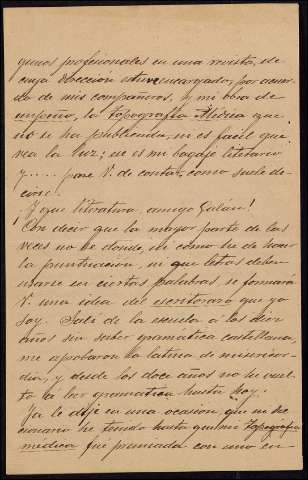 gunos profesionales en una revista, de
cuya dirección estuve encargado, por acuer-
do de mis compañeros, y mi obra de
empeño, la Topografía Médica que
no se ha publicado, ni es fácil que
vea la luz; ve es mi bagaje literario
y..... pare V. de contar, como suele de-
cirse.
¡Y que literatura, amigo Galán!
Con decir que la mayor parte de las
veces no se donde, ni cómo he de hacer
la puntuación, ni que letras deben
usarse en ciertas palabras, se formará
V. una idea del escritorazo que yo
soy. Salí de la escuela a los diez
años sin saber gramática castellana,
me aprobaron la latina de misericor-
dia, y desde los doce años no he vuel-
to a leer gramatica hasta hoy.
Ya le dije en una ocasión, que ni dic-
cionario he tenido hasta que mi Topografía
médica fui premiada con uno en